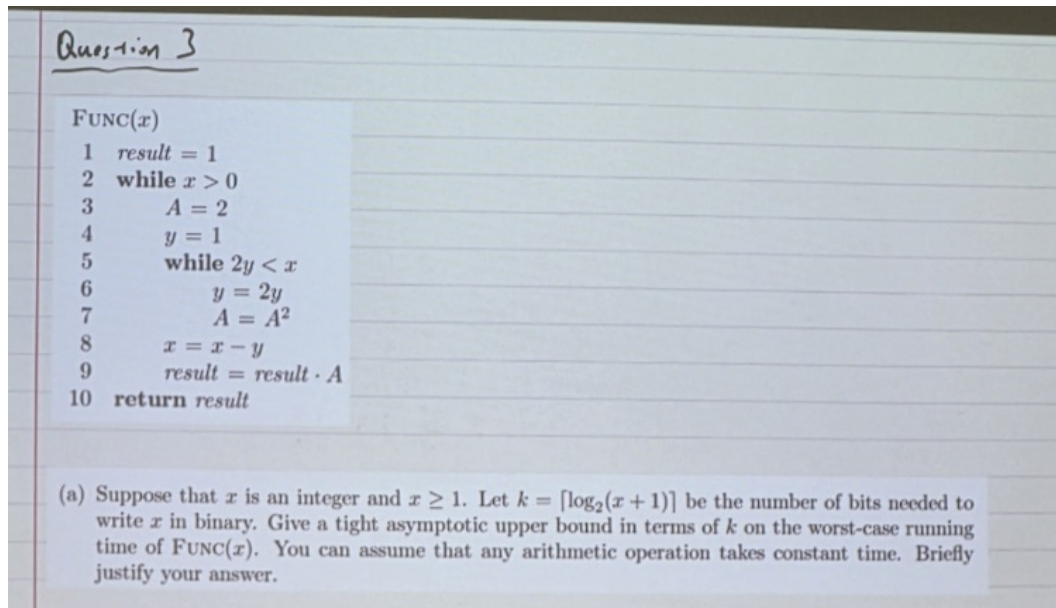 Question 3
FUNC(x)
1 result = 1
2 while x > 0
3 A = 2
4 y = 1
5 while 2y < x
6 y = 2y
7 A = A²
8 x = x − y
9 result = result · A
10 return result
(a) Suppose that x is an integer and x ≥ 1. Let k = ⌈log₂(x + 1)⌉ be the number of bits needed to
write x in binary. Give a tight asymptotic upper bound in terms of k on the worst-case running
time of FUNC(x). You can assume that any arithmetic operation takes constant time. Briefly
justify your answer.